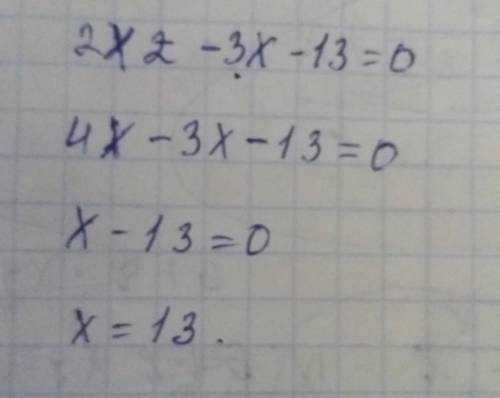 2x2 - 3x - 13 = 0
4x - 3x - 13 = 0
x - 13 = 0
x = 13.